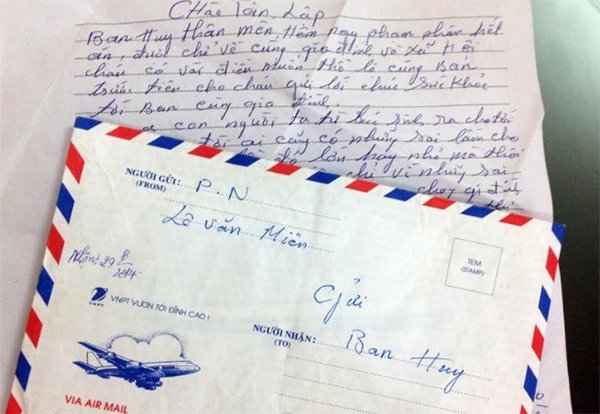 Chào Tân Lập
Ban Huy thân mến, Hôm nay phạm nhân hết
án, được chở về cùng gia đình và xã Hội
cháu có vài điều muốn thổ lộ cùng Ban
trước tiên cho cháu gửi lời chúc sức khỏe
tới Ban cùng gia đình.
con người ta từ lúc sinh ra cho tới
tới ai cũng có những sai lầm cho
dù đó lớn hay nhỏ mà thôi
chỉ vì những sai
NGƯỜI GỬI: P.N
(FROM)
Lê Văn Miên
TEM
(STAMP)
Nhận: 29/8/2014
VNPT
VNPT VƯƠN TỚI ĐỈNH CAO !
Gửi
NGƯỜI NHẬN: Ban Huy
(TO)
VIA AIR MAIL